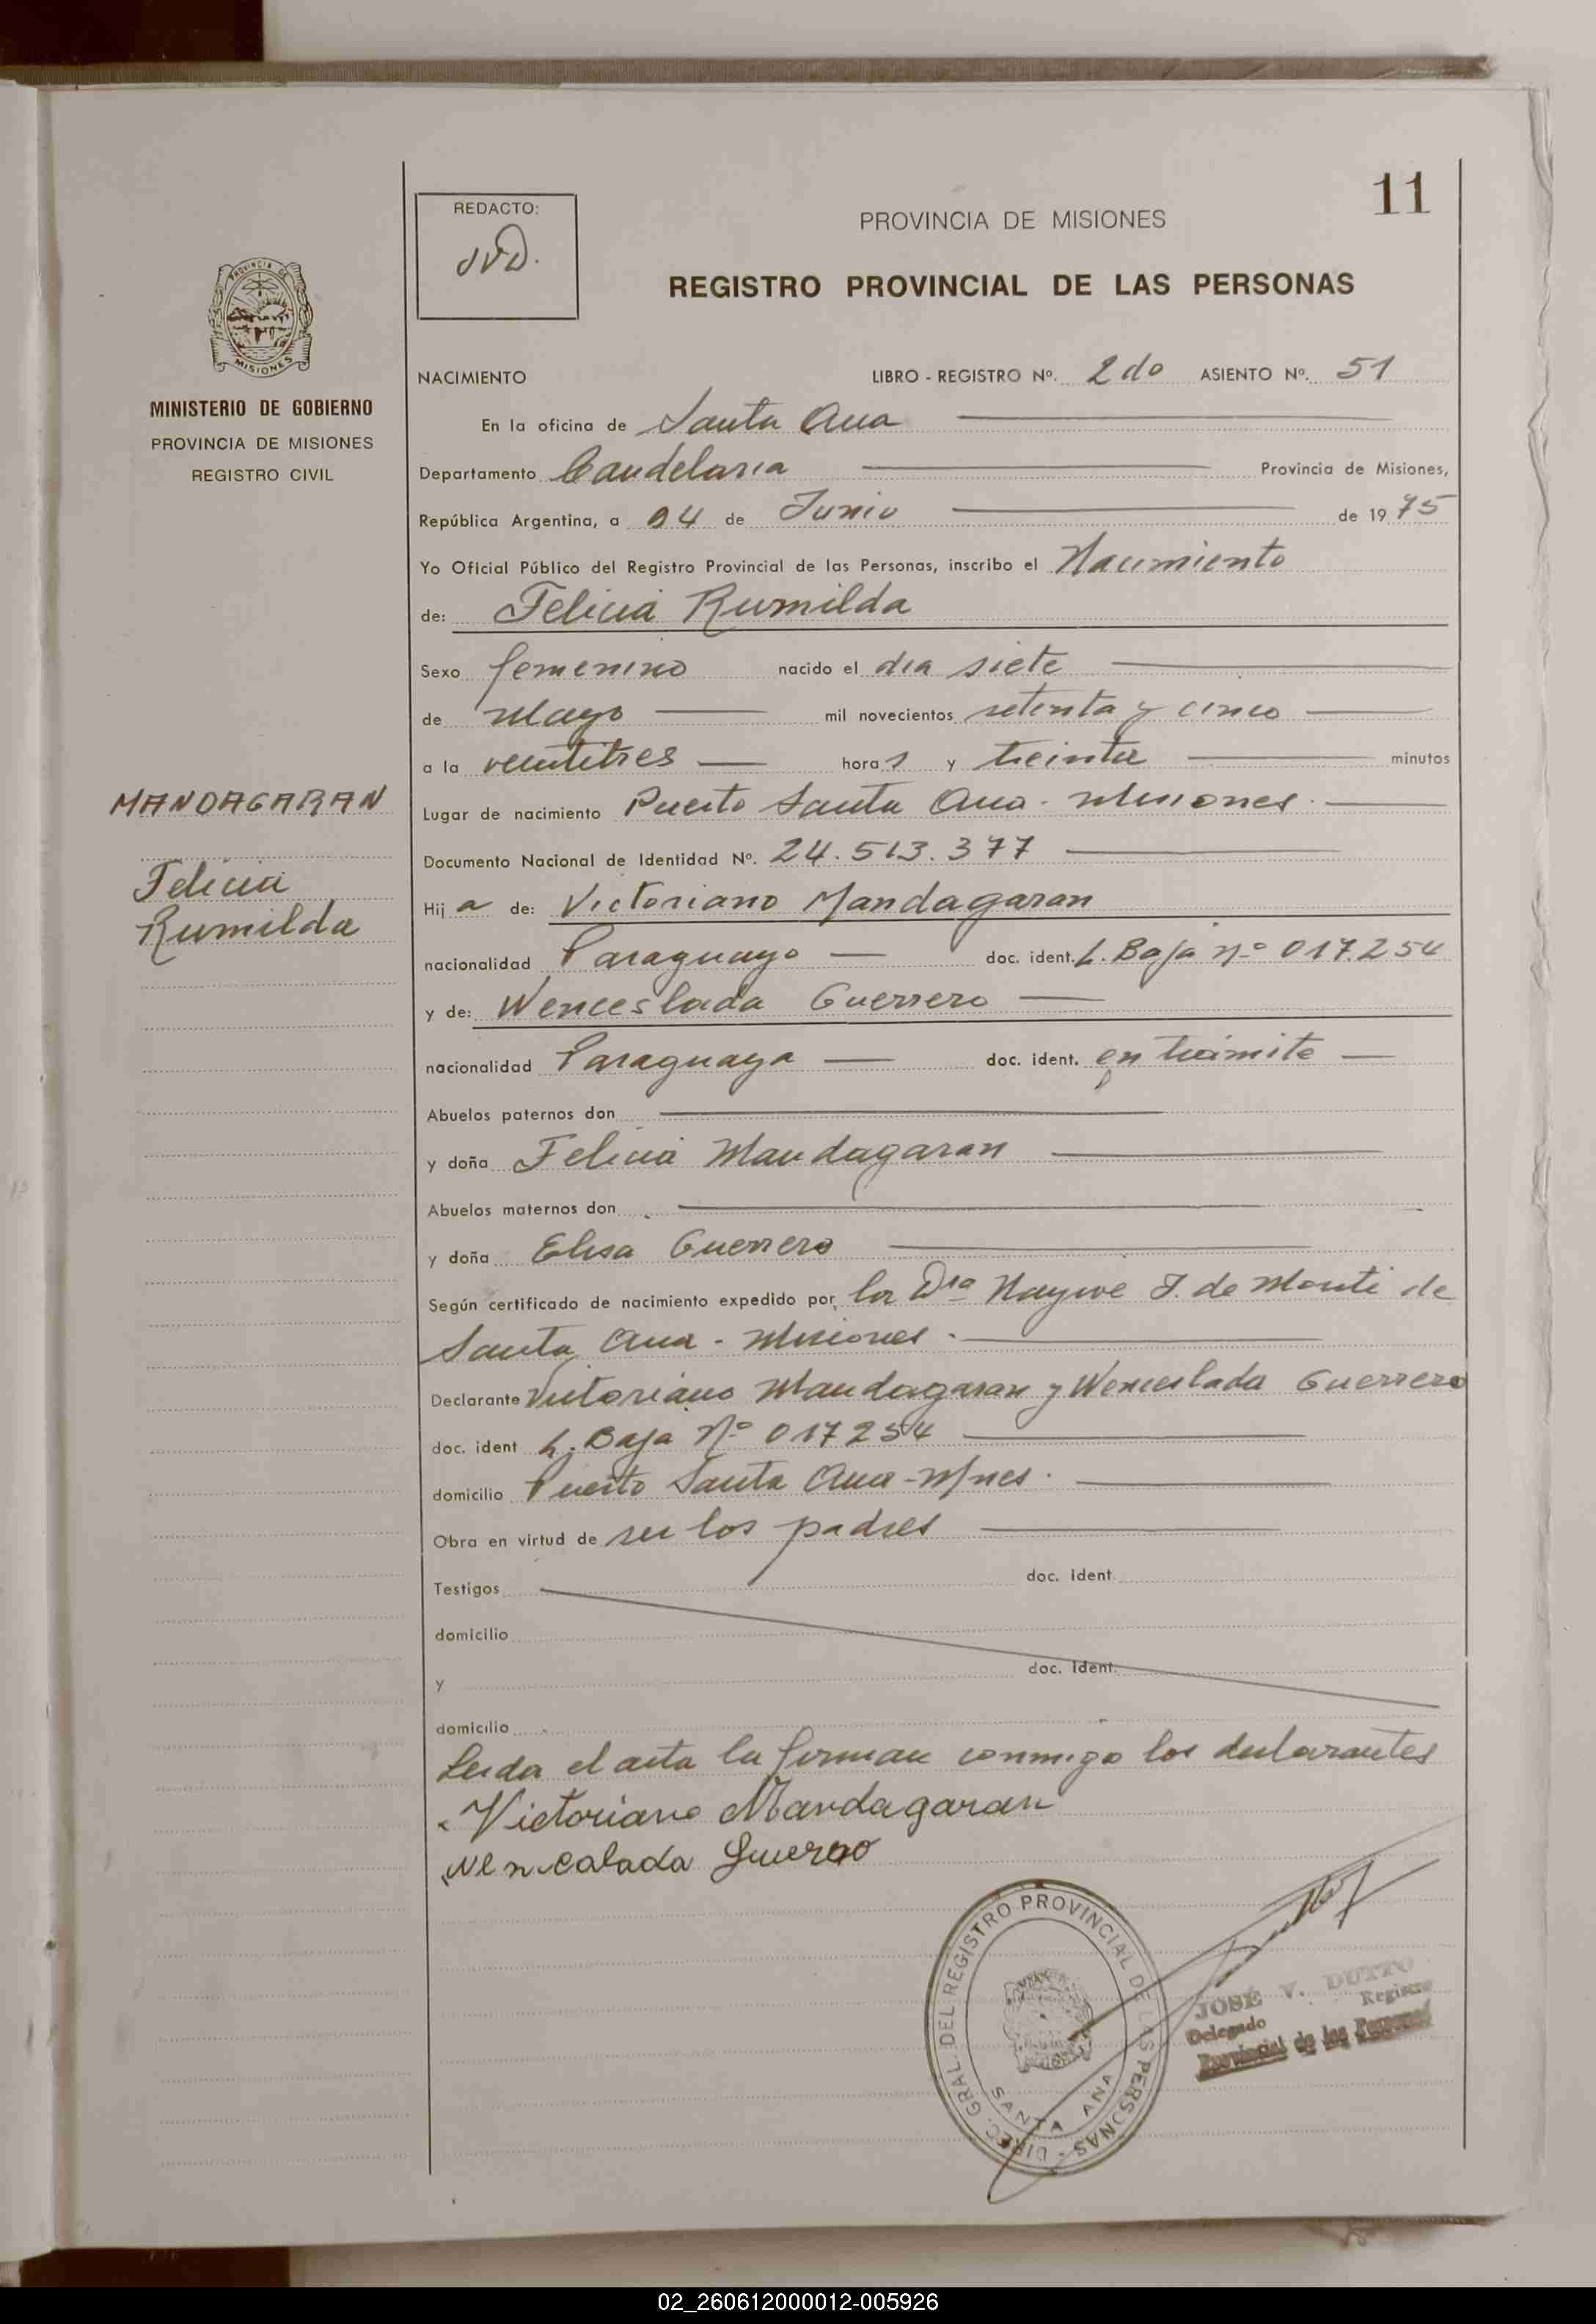 11
REDACTO:
JVD.
PROVINCIA DE MISIONES
REGISTRO PROVINCIAL DE LAS PERSONAS
PROVINCIA DE
MISIONES
MINISTERIO DE GOBIERNO
PROVINCIA DE MISIONES
REGISTRO CIVIL
NACIMIENTO LIBRO - REGISTRO Nº. 2do ASIENTO Nº. 51
En la oficina de Santa Ana
Departamento Candelaria Provincia de Misiones,
República Argentina, a 04 de Junio de 1975
Yo Oficial Público del Registro Provincial de las Personas, inscribo el Nacimiento
de: Felicia Rumilda
Sexo femenino nacido el dia siete
de Mayo mil novecientos setenta y cinco
a la veintitres horas y treinta minutos
MANDAGARAN
Felicia
Rumilda
Lugar de nacimiento Puerto Santa Ana - Misiones.
Documento Nacional de Identidad Nº. 24.513.377
Hija de: Victoriano Mandagaran
nacionalidad Paraguayo doc. ident. L. Baja nº 017.254
y de: Wenceslada Guerrero
nacionalidad Paraguaya doc. ident. en trámite
Abuelos paternos don
y doña Felicia Mandagaran
Abuelos maternos don
y doña Elisa Guerrero
Según certificado de nacimiento expedido por la Dra J. de Monti de
Santa Ana - Misiones.
Declarante Victoriano Mandagaran y Wenceslada Guerrero
doc. ident L. Baja Nº 017254
domicilio Puerto Santa Ana - Mnes.
Obra en virtud de ser los padres
Testigos doc. ident.
domicilio
y doc. ident.
domicilio
Leida el acta la firman conmigo los declarantes
Victoriano Mandagaran
Wencalada Guerrero
DIREC. GRAL. DEL REGISTRO PROVINCIAL DE LAS PERSONAS -
SANTA ANA
JOSÉ V. DUTTO
Delegado Registro
Provincial de las Personas
02_260612000012-005926